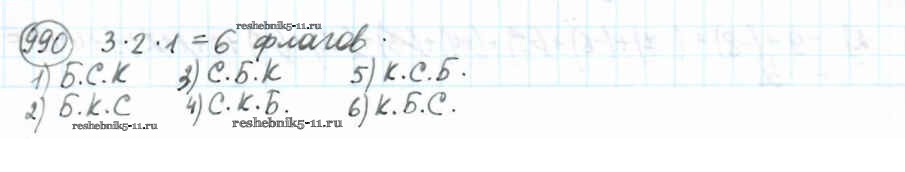 reshebnik5-11.ru
990 3·2·1=6 флагов.
1) Б.С.К 3) С.Б.К 5) К.С.Б.
2) Б.К.С 4) С.К.Б. 6) К.Б.С.
reshebnik5-11.ru reshebnik5-11.ru